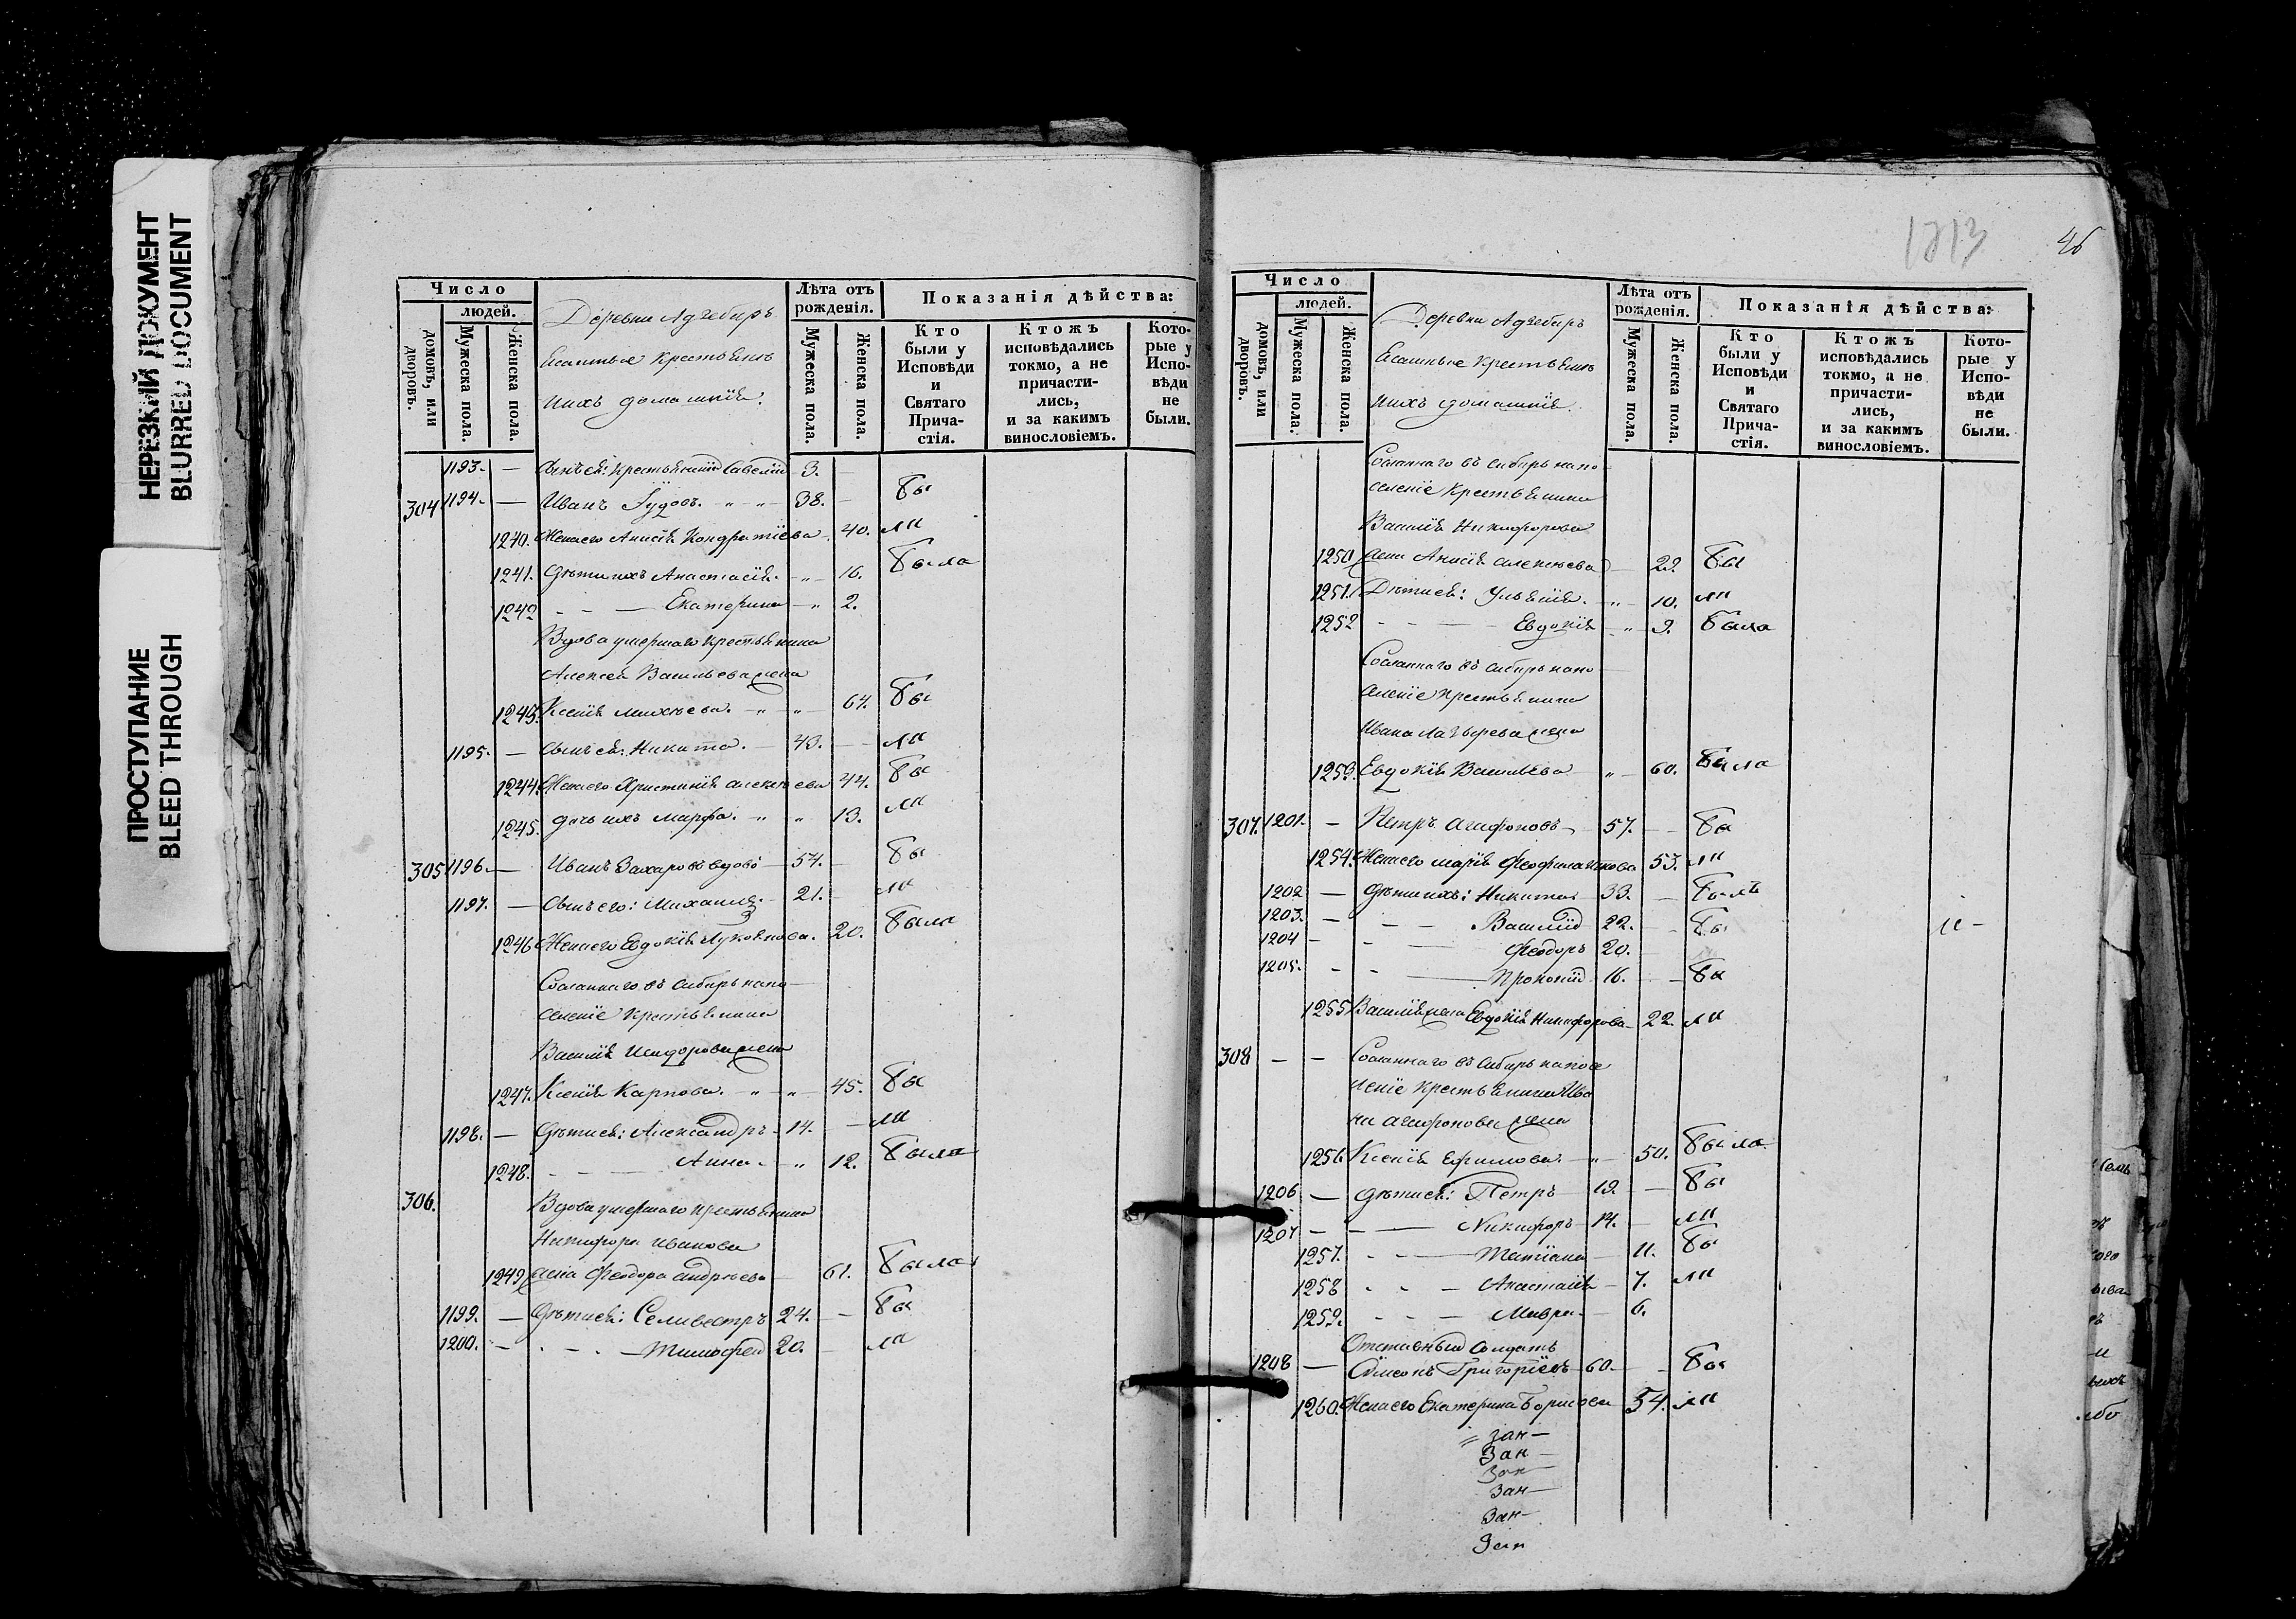 НЕРЕЗКИЙ ДОКУМЕНТ
BLURRED DOCUMENT
ПРОСТУПАНИЕ
BLEED THROUGH
Число
людей.
домовъ, или дворовъ.
Мужеска пола.
Женска пола.
Деревни Адгебиръ
Ясашные крестьяне
и ихъ домашнiя.
Лѣта отъ рожденiя.
Мужеска пола.
Женска пола.
Показанiя дѣйства:
Кто были у Исповѣди и Святаго Прича-стiя.
Ктожъ исповѣдались токмо, а не причасти-лись, и за какимъ винословiемъ.
Кото-рые у Испо-вѣди не были.
1193. — Сынъ ея: крестьянинъ Савелiй 3.
304 1194. — Иванъ 38. — бы
1240. Жена его Анисiя Кондратiева 40. ли
1241. Дѣти ихъ Анастасiя. 16. была
1242 Екатерина 2.
Вдова умершаго крестьянина
Алексея Васильева жена
1243. Ксенiя Михеева. 64. бы
1195. — Сынъ ея: Никита. 43. ли
1244. Жена его Христинiя Алексеева 44. бы
1245. Дочь ихъ Марфа. 13. ли
305 1196. — Иванъ Захаровъ вдовъ 54. бы
1197. — Сынъ его: Михаилъ. 21. ли
1246 Жена его Евдокiя 20. были
Сосланнаго въ Сибирь на по
селенiе крестьянина
Василiя Исидорова жена
1247. Ксенiя Карпова. 45. бы
1198. — Дѣти ея: Александръ 14. — ли
1248. Анна. 12. была
306. Вдова умершаго крестьянина
Никифора Иванова
1249 жена Феодора Андреева 61. была
1199. — Дѣти ея: Селивестръ 24. — бы
1200. — Тимофей 20. — ли
1213
46
Число
людей.
домовъ, или дворовъ.
Мужеска пола.
Женска пола.
Деревни Адгебиръ
Ясашные крестьяне
и ихъ домашнiя.
Лѣта отъ рожденiя.
Мужеска пола.
Женска пола.
Показанiя дѣйства:
Кто были у Исповѣди и Святаго Прича-стiя.
Ктожъ исповѣдались токмо, а не причасти-лись, и за какимъ винословiемъ.
Кото-рые у Испо-вѣди не были.
Сосланнаго въ Сибирь на по
селенiе крестьянина
Василiя Никифорова
1250 жена Анисiя Алексеева 22. бы
1251. Дѣти ея: Ульянiя. 10. ли
1252 Евдокiя 9. была
Сосланнаго въ Сибирь на по
селенiе крестьянина
Ивана жена
1253. Евдокiя Васильева 60. была
307. 1201. — Петръ Агафоновъ 57. — бы
1254. Жена его Марiя 53. ли
1202 — Дѣти ихъ: Никита 33. — былъ
1203. — Василiй 22. — бы
1204 — Феодоръ 20. и —
1205. — Прокопiй 16. — бы
1255 Василiя жена Евдокiя Никифорова 22. ли
308 — — Сосланнаго въ Сибирь на посе
ленiе крестьянина Ива
на Агафонова жена
1256. Ксенiя Ефимова. 50. была
1206 — Дѣти ея: Петръ 19. — бы
1207 — Никифоръ 14. — ли
1257. Татiана 11. бы
1258 Анастасiя 7. ли
1259. Мавра 6.
Отставный солдатъ
1208 — Симеонъ Григорiевъ 60. — бы
1260. Жена его Екатерина Борисова 54. ли
зан —
Зан —
Зан
Зан —
Зан —
Зан